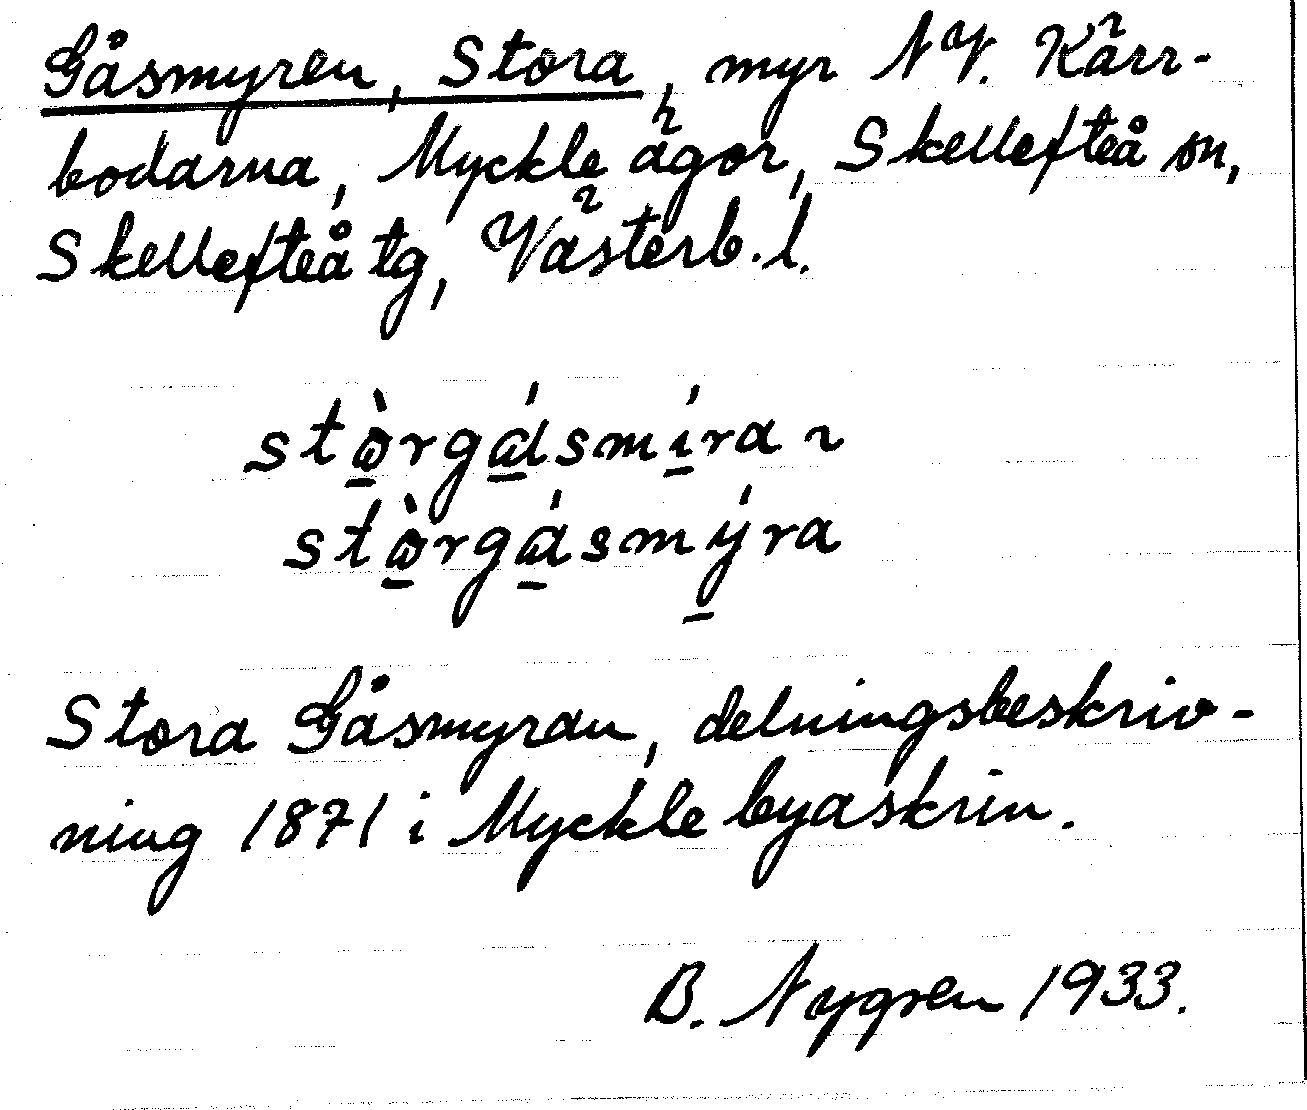 Gåsmyren, Stora, myr NV. Kärr-
bodarna, Myckle ägor, Skellefteå sn,
Skellefteå tg, Västerb. l.
stòrgásmíra ~
stòrgásmýra
Stora Gåsmyran, delningsbeskriv-
ning 1871 i Myckle byaskrin.
B. Nygren 1933.